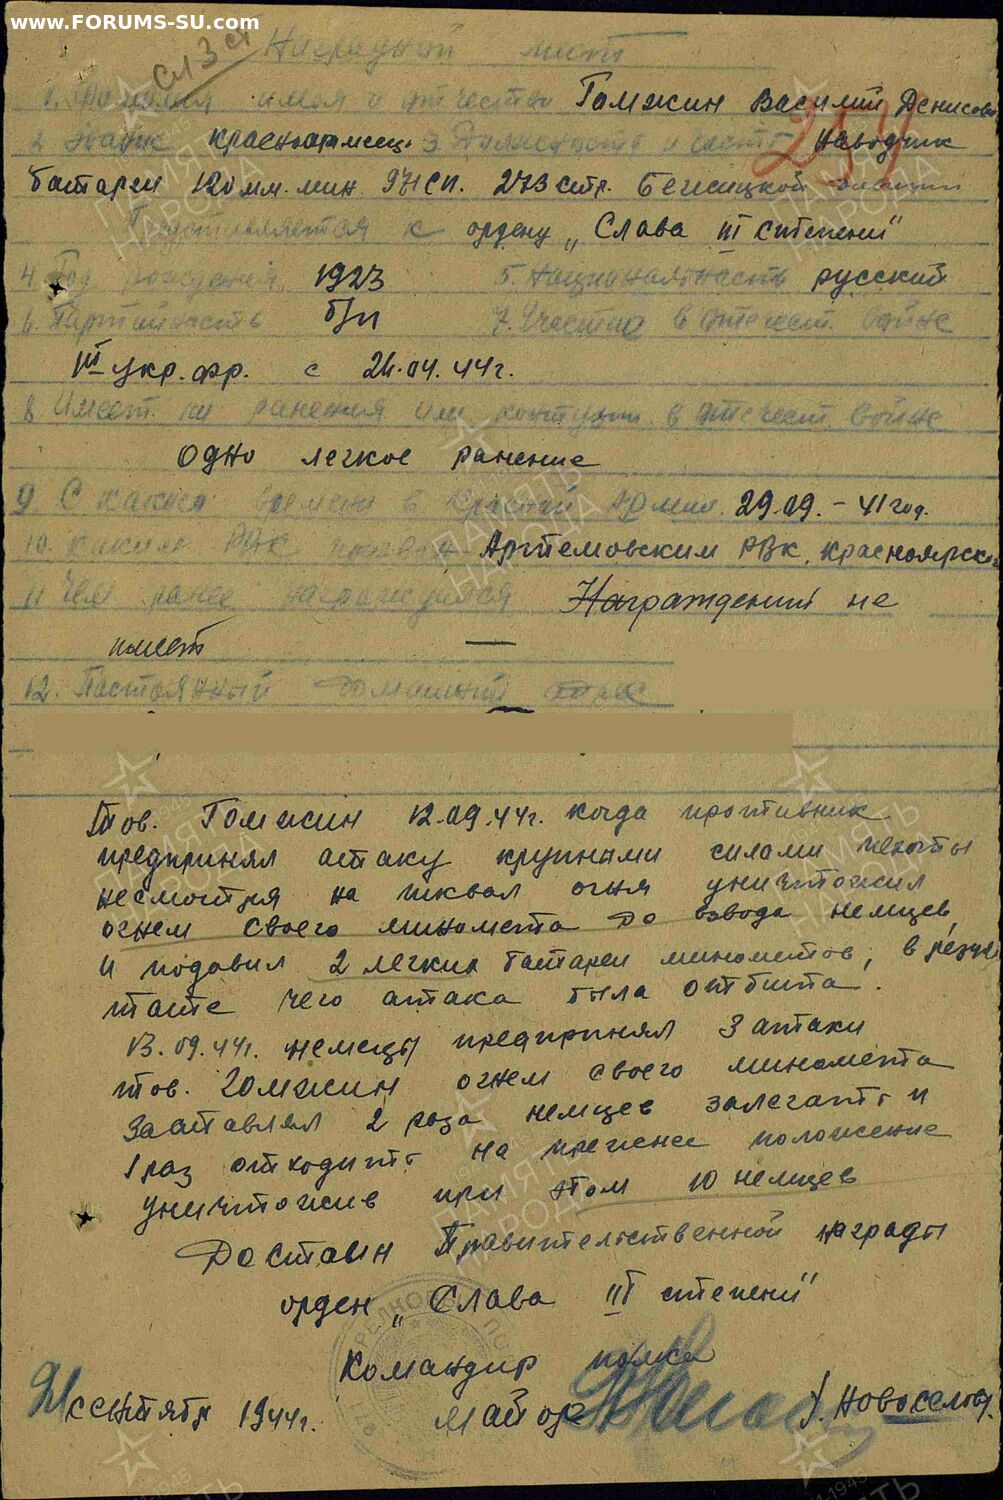 www.FORUMS-SU.com
Наградной лист
1. Фамилия имя и отчество Гомжин Василий Денисови
2. Звание красноармеец. 3. Должность и часть наводчик
батареи 120 мм. мин. 971 сп. 273 стр. Бежицкой дивизии
Представляется к ордену „Слава III степени"
4. Год рождения. 1923 5. Национальность русский
6. Партийность б/п 7. Участие в отечест. войне
III укр. фр. с 24.04.44г.
8 Имеет ли ранения или контузии в отечест войне
одно легкое ранение
9 С какого времени в красной Армии. 29.09.-41 год.
10. каким РВК призван Артемовским РВК, красноярск
11 Чем ранее награждался Награждений не
имеет —
12. Постоянный домашний адрес
Тов. Гомжин 12.09.44г. когда противник
предпринял атаку крупными силами пехоты
несмотря на шквал огня уничтожил
огнем своего миномета до взвода немцев,
и подавил 2 легких батареи минометов, в резул
тате чего атака была отбита.
13.09.44г. немецы предпринял 3 атаки
тов. Гомжин огнем своего миномета
заставлял 2 раза немцев залегать и
1 раз отходить на прежнее положение
уничтожив при этом 10 немцев
Достоин Правительственной награды
орден „Слава III степени"
Командир полка
майор /. Новоселов/.
21 сентября 1944г.
ПАМЯТЬ
НАРОДА